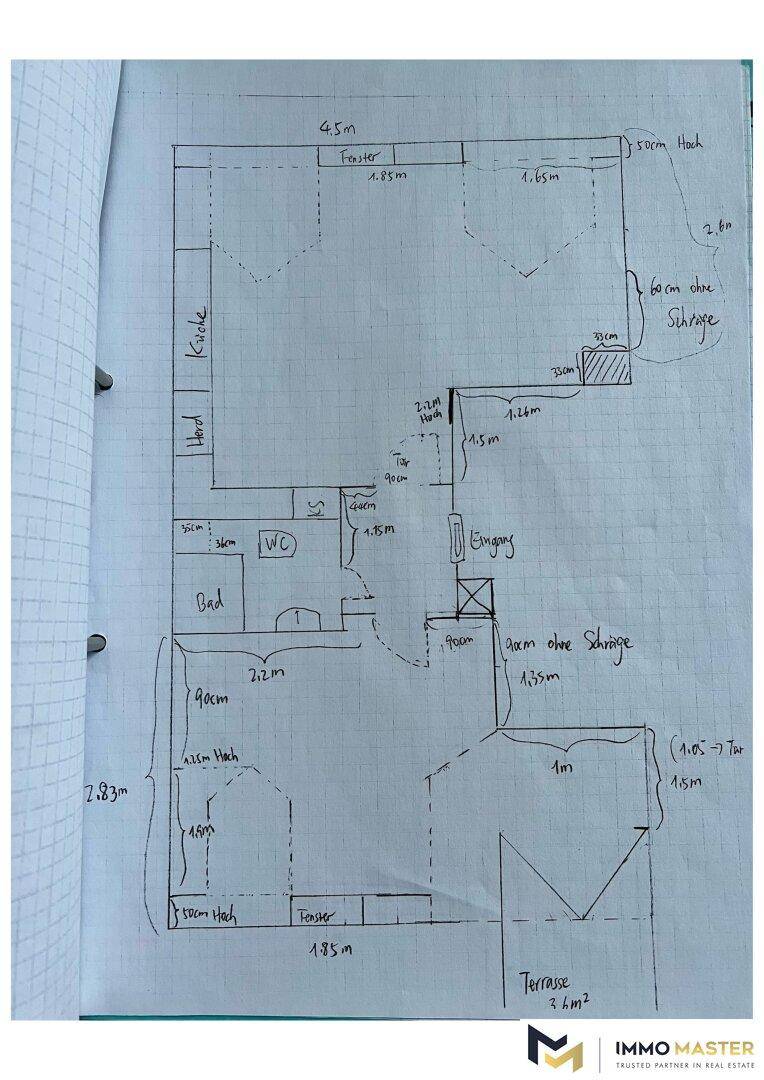 4.5m
Fenster
1.85m
1.65m
50cm Hoch
2.6m
60cm ohne
Schräge
33cm
33cm
Küche
Herd
2.2m
Hoch
1.26m
1.5m
Tür
90cm
KS
44cm
1.15m
35cm
36cm
WC
Eingang
Bad
90cm
90cm ohne Schräge
2.2m
1.35m
90cm
1.25m Hoch
1m
(1.05 → Tür
1.5m
2.83m
50cm Hoch
Fenster
1.85m
Terrasse
3.6m²
IMMO MASTER
TRUSTED PARTNER IN REAL ESTATE